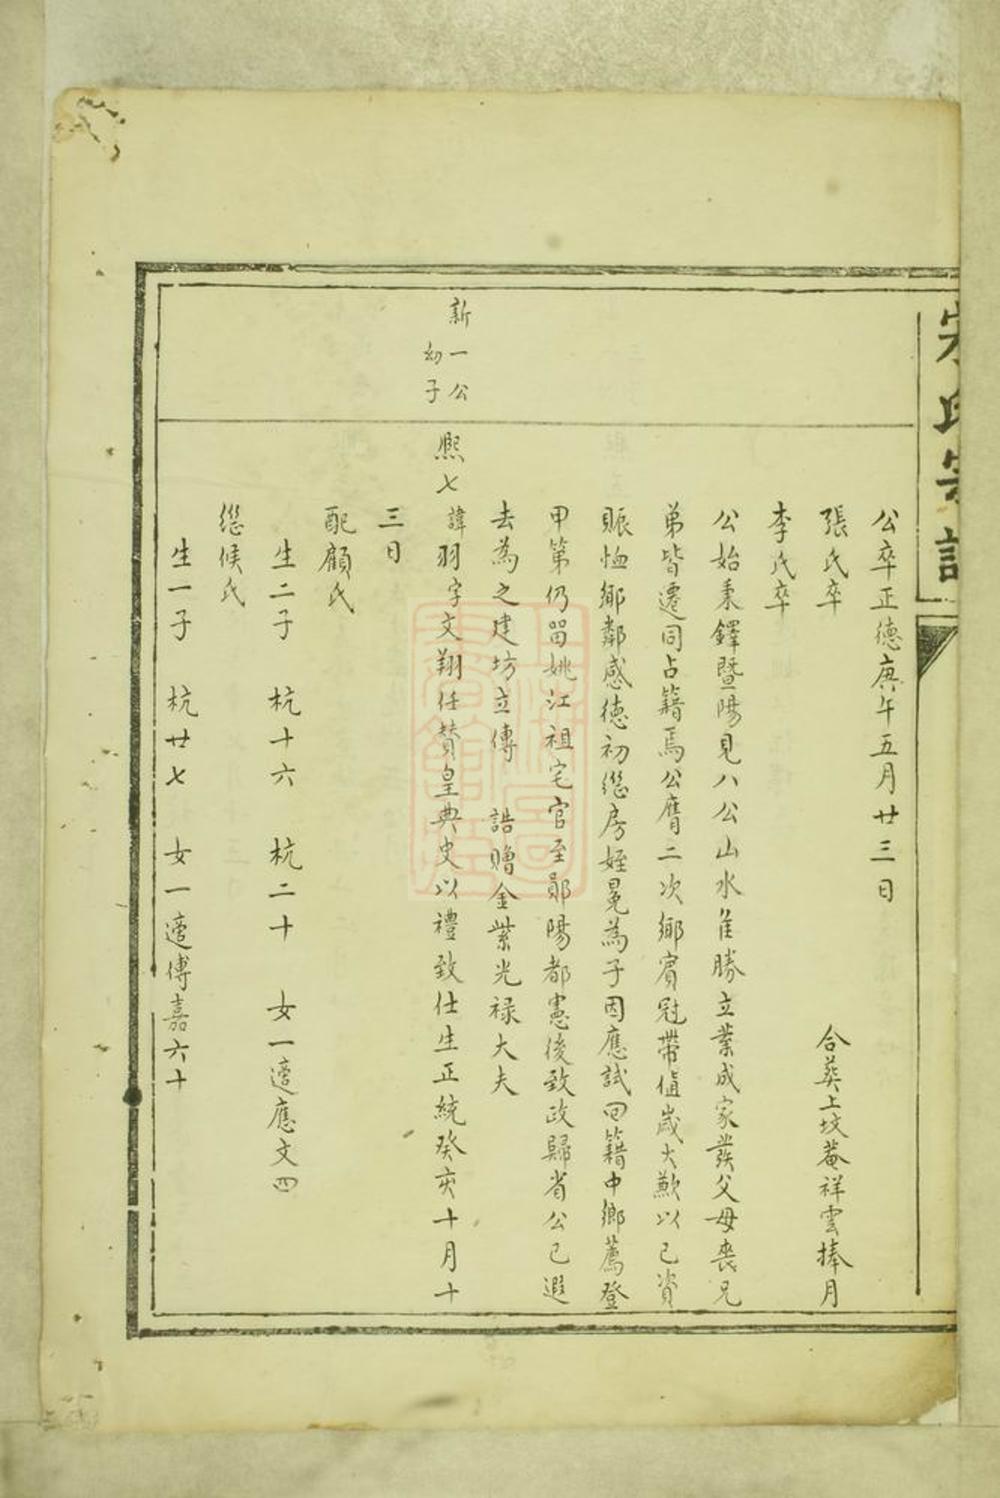 宋氏宗譜
公卒正德庚午五月廿三日
張氏卒 合葬上坟菴祥雲捧月
李氏卒
公始秉鐸暨陽見八公山水隹勝立業成家葬父母喪兄
弟皆遷同占籍焉公膺二次鄉賓冠帶值歲大歉以己資
賑恤鄉鄰感德初繼房姪冕為子因應試回籍中鄉薦登
甲第仍留姚江祖宅官至鄖陽都憲後致政歸省公已遐
去為之建坊立傳 誥贈金紫光禄大夫
新一公
幼子
熙七諱羽字文翔任贊皇典史以禮致仕生正統癸亥十月十
三日
配顧氏
生二子 杭十六 杭二十 女一適應文四
繼候氏
生一子 杭廿七 女一適傅嘉六十